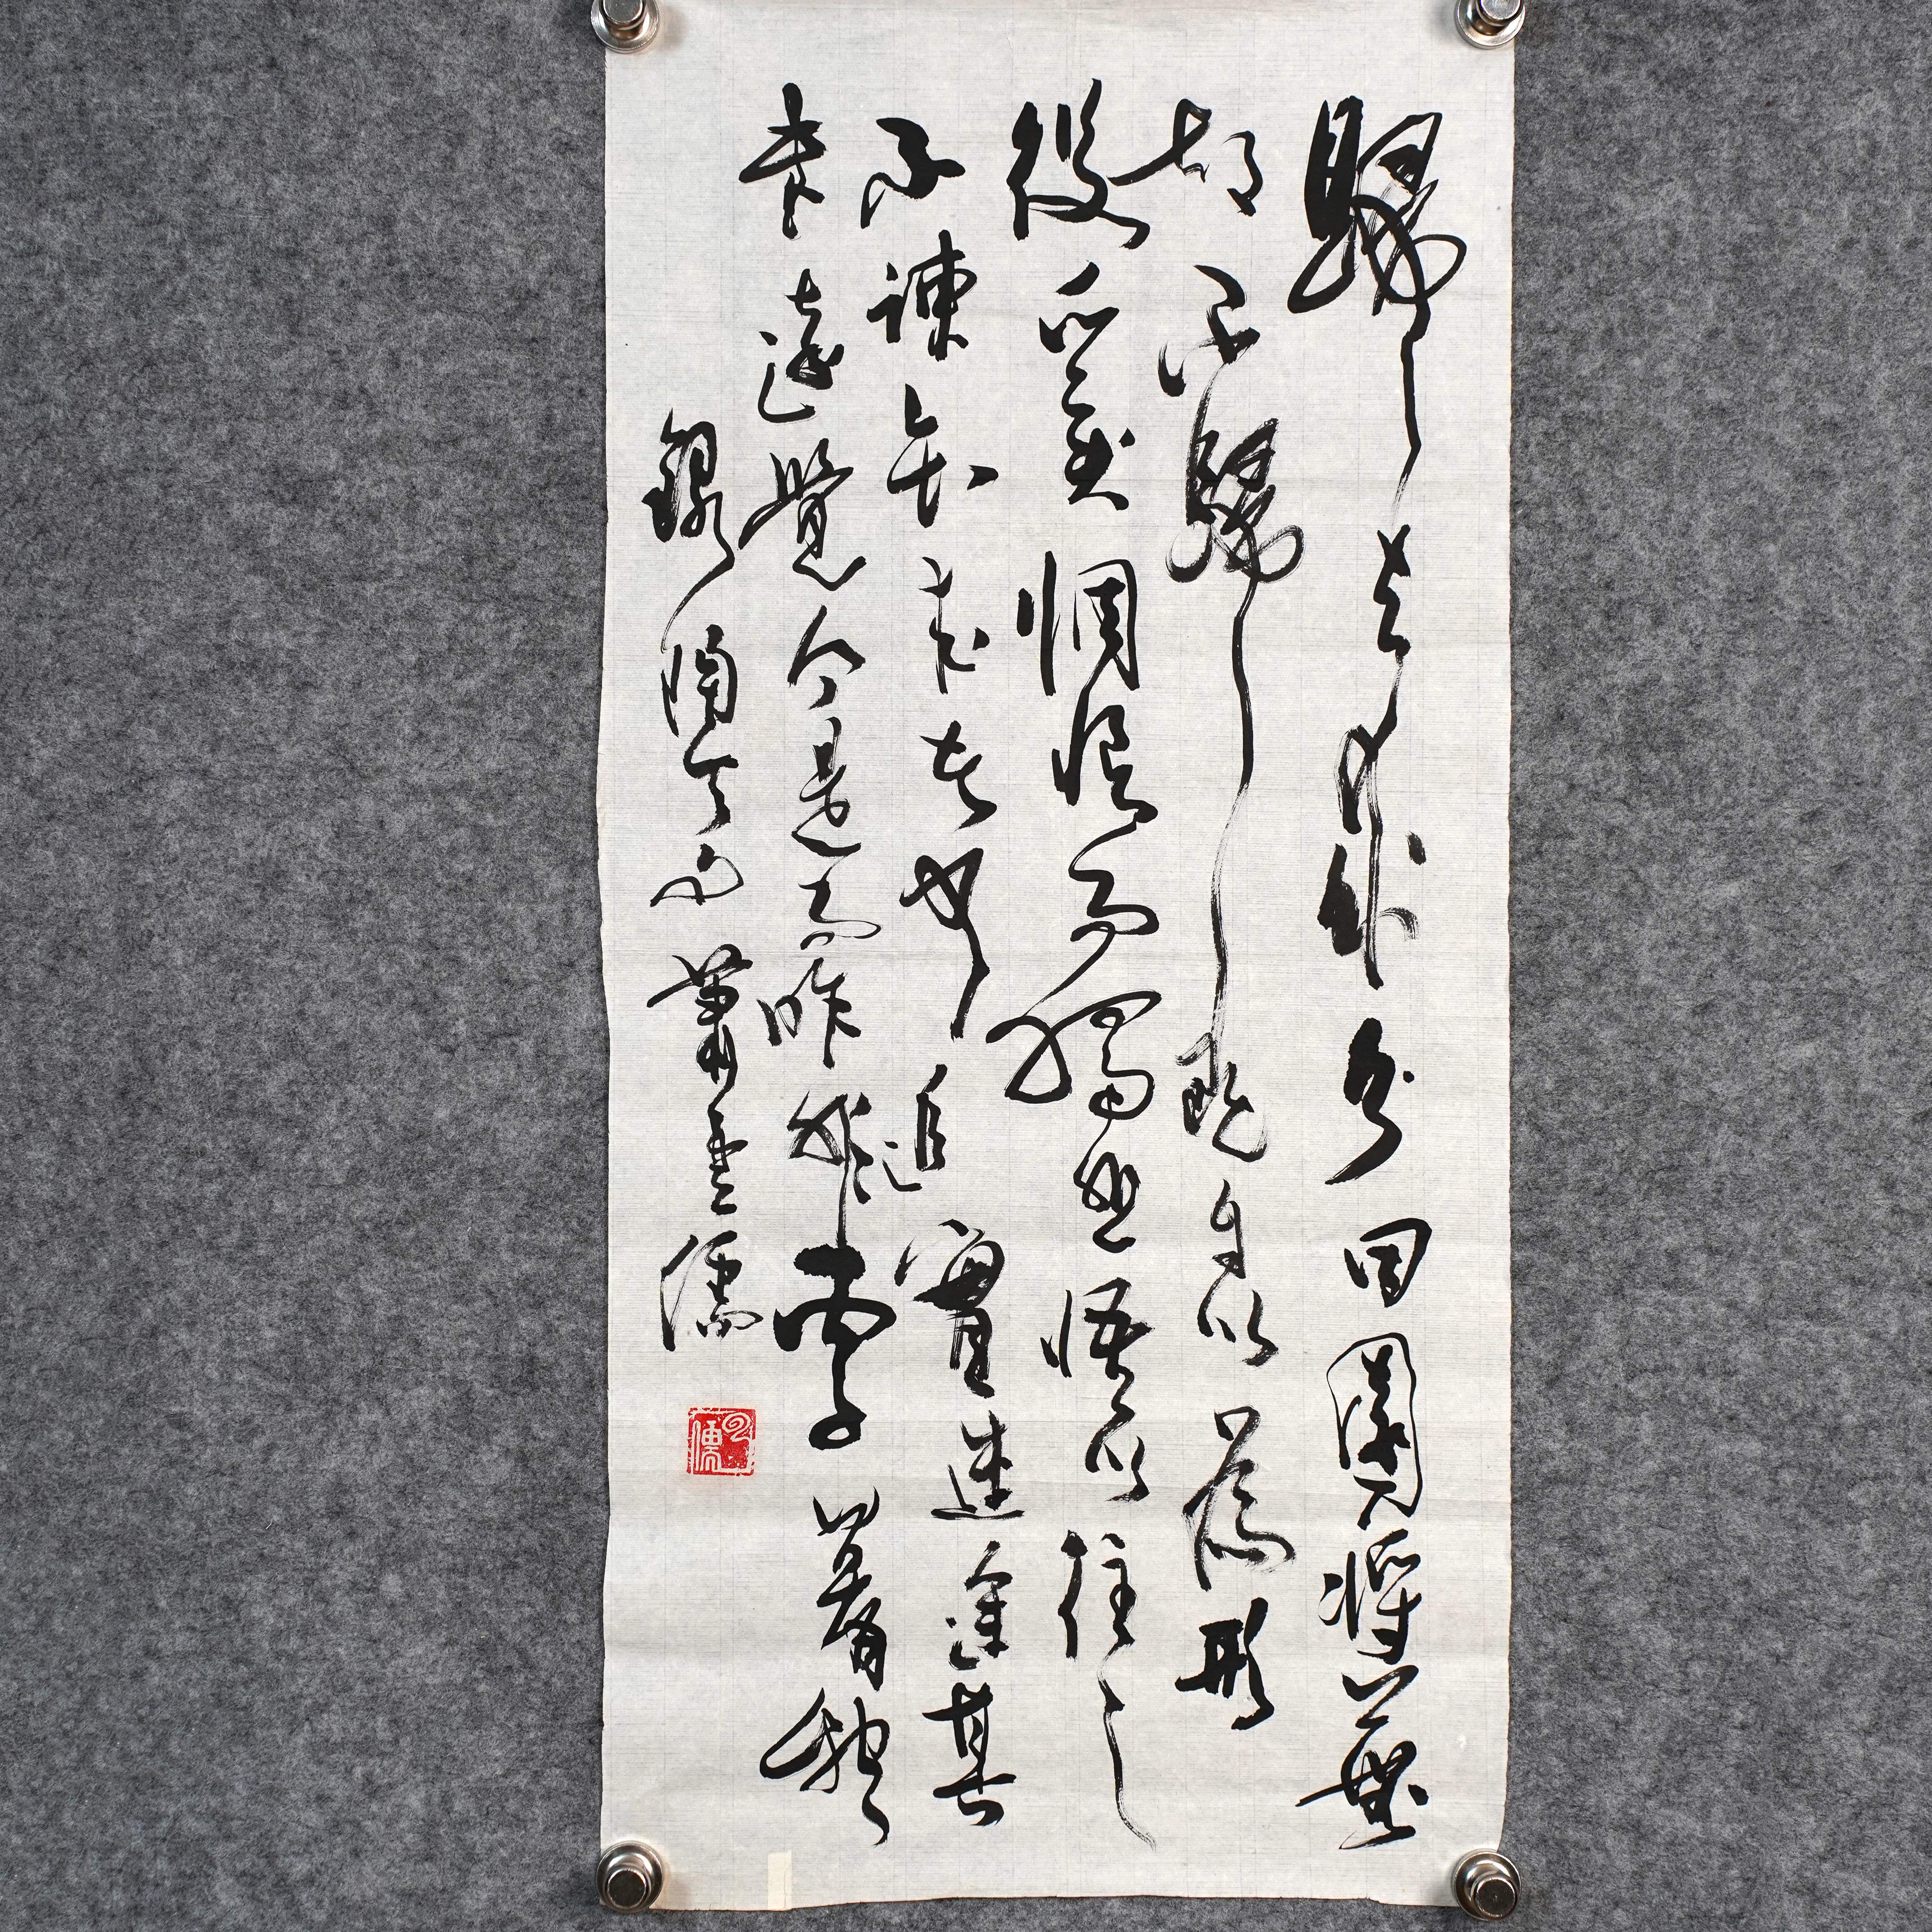 歸去來兮田園將蕪
胡不歸既自以為形
役奚惆悵而獨悲悟以往之
不諫知來者可追實迷途其
未遠覺今是而昨非丙子暮秋
錄陶令句蕭雲儒
雲儒